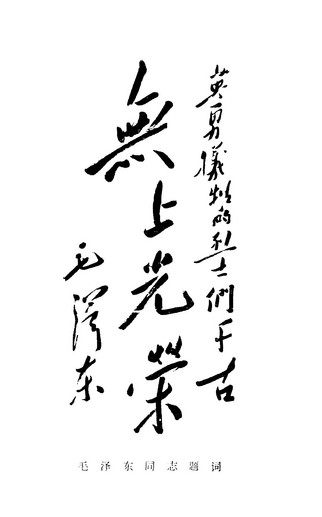 英勇犧牲的烈士們千古
無上光榮
毛澤东
毛泽东同志题词